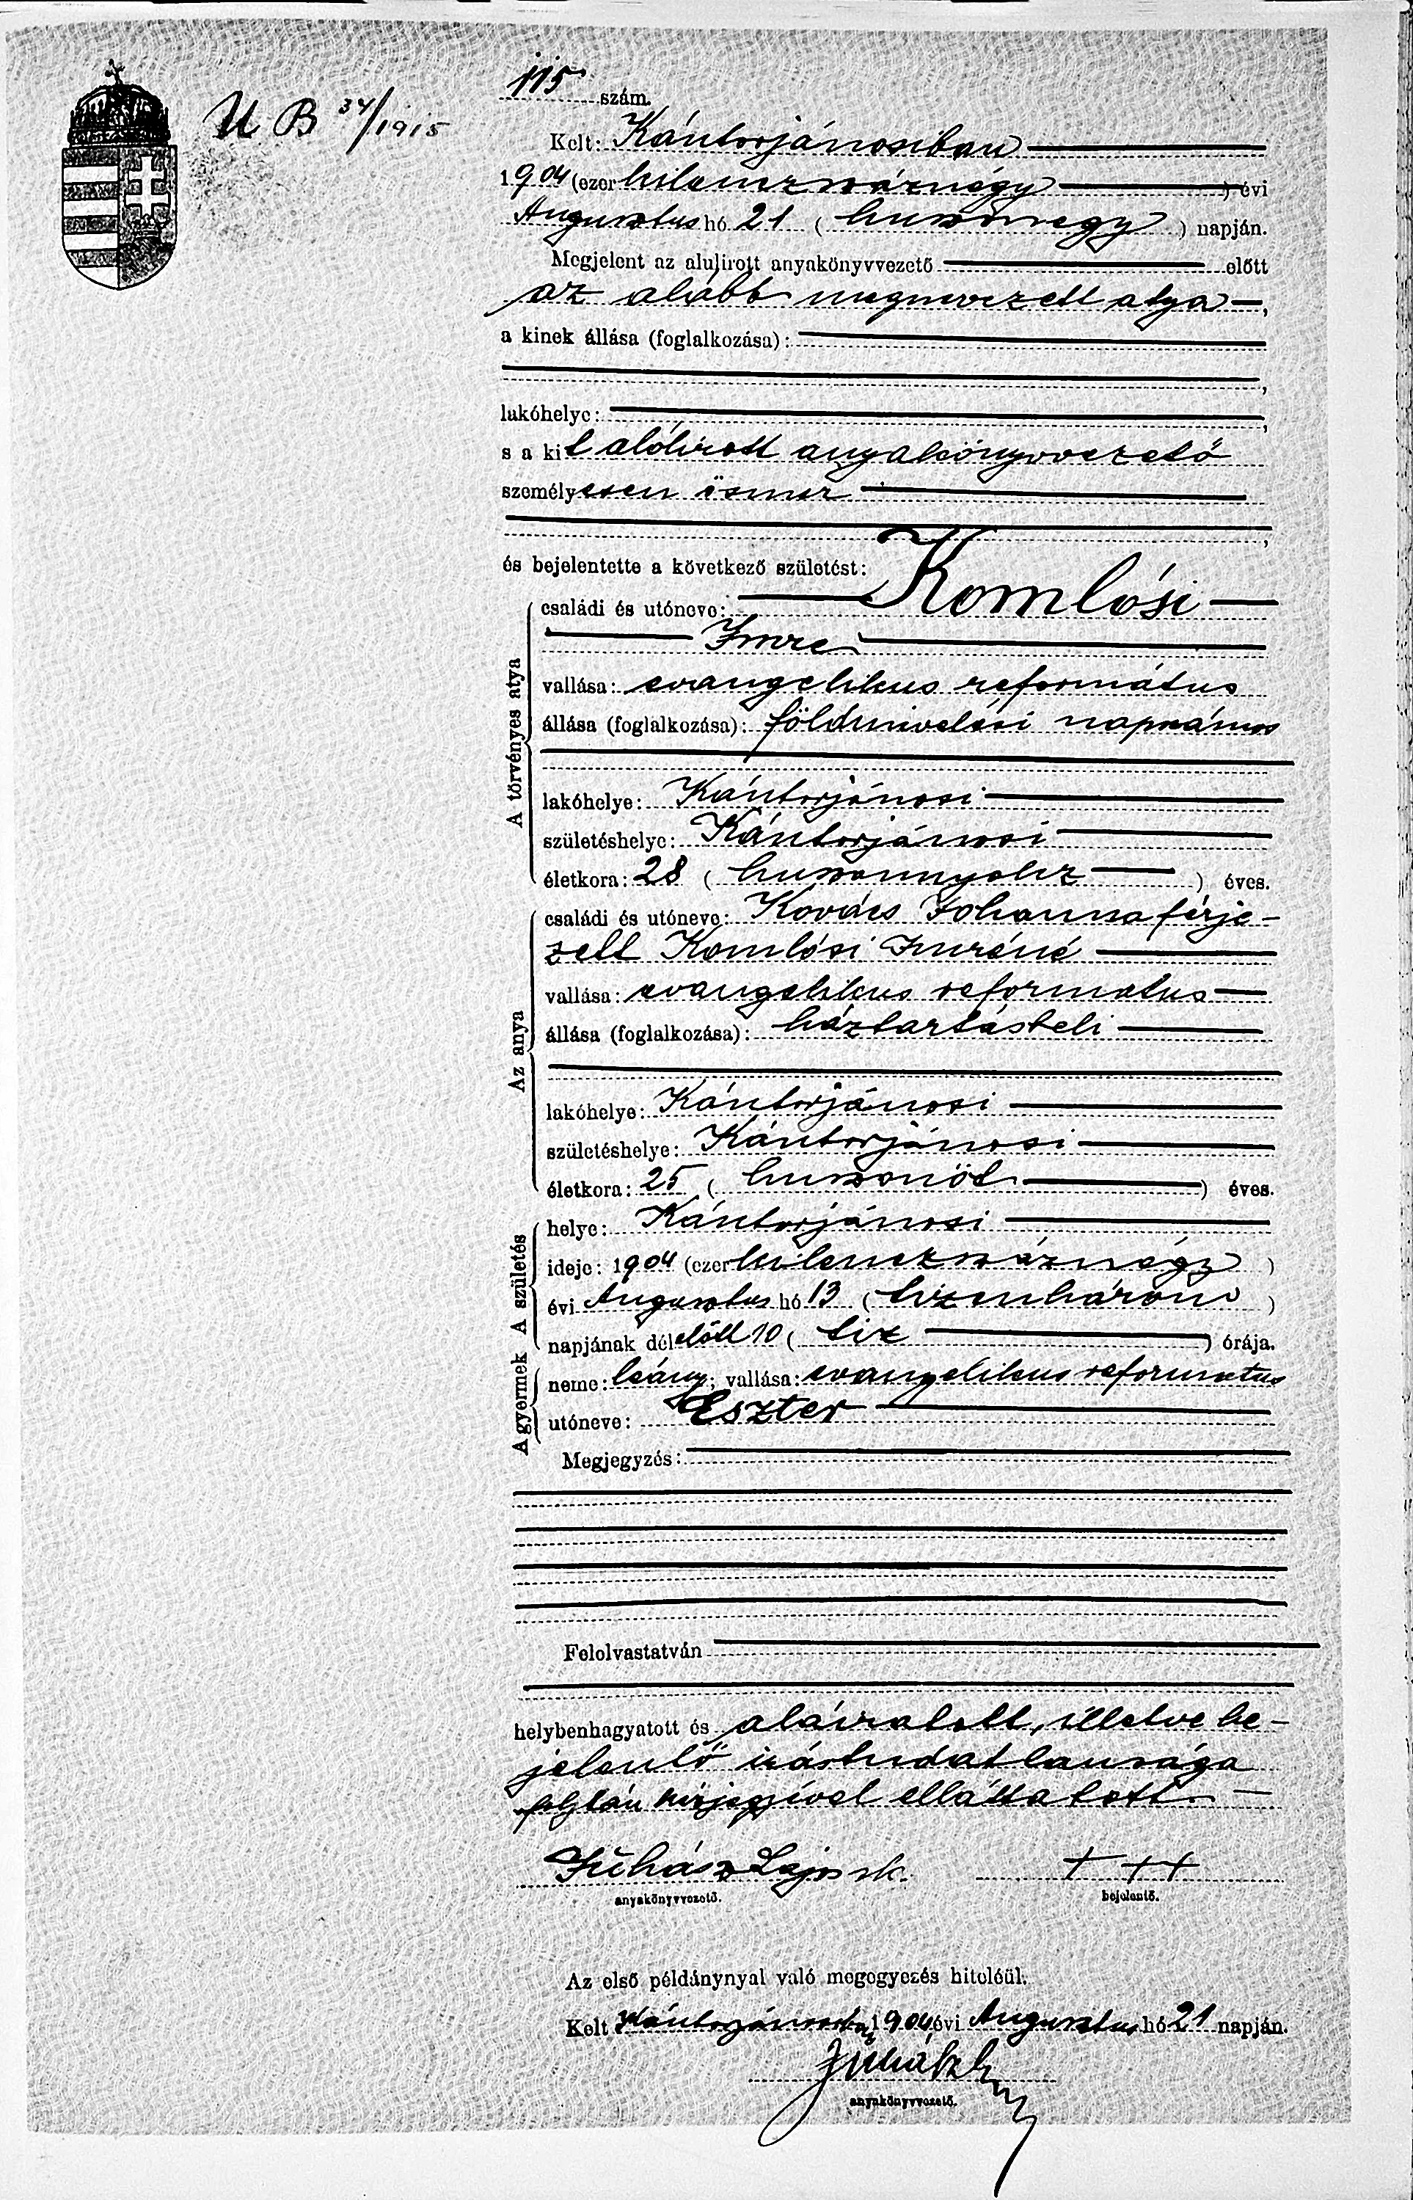 U B 34/1915
115 szám.
Kelt: Kántorjánosiban
1904 (ezer kilenczszáznégy) évi
Augusztus hó 21 (huszonegy) napján.
Megjelent az alulirott anyakönyvvezető előtt
az alább megnevezett atya,
a kinek állása (foglalkozása):
,
lakóhelye: ,
s a kit alólirott anyakönyvvezető
személyesen ösmer
,
és bejelentette a következő születést:
A törvényes atya
családi és utóneve: Komlósi
Imre
vallása: evangelikus református
állása (foglalkozása): földmivelési napszámos
lakóhelye: Kántorjánosi
születéshelye: Kántorjánosi
életkora: 28 (huszonnyolcz) éves.
Az anya
családi és utóneve: Kovács Johanna férje-
zett Komlósi Imréné
vallása: evangelikus reformatus
állása (foglalkozása): háztartásbeli
lakóhelye: Kántorjánosi
születéshelye: Kántorjánosi
életkora: 25 (huszonöt) éves.
A születés
helye: Kántorjánosi
ideje: 1904 (ezer kilenczszáznégy)
évi Augusztus hó 13 (tizenhárom)
napjának délelőtt 10 (tiz) órája.
A gyermek
neme: leány; vallása: evangelikus reformatus
utóneve: Eszter
Megjegyzés:
Felolvastatván
helybenhagyatott és aláiratott, illetve be-
jelentő irástudatlansága
folytán kézjegyével elláttatott.
Juhász Lajos sk. + ++
anyakönyvvezető. bejelentő.
Az első példánynyal való megegyezés hiteléül.
Kelt Kántorjánosiban 1904 évi Augusztus hó 21 napján.
Juhász L
anyakönyvvezető.